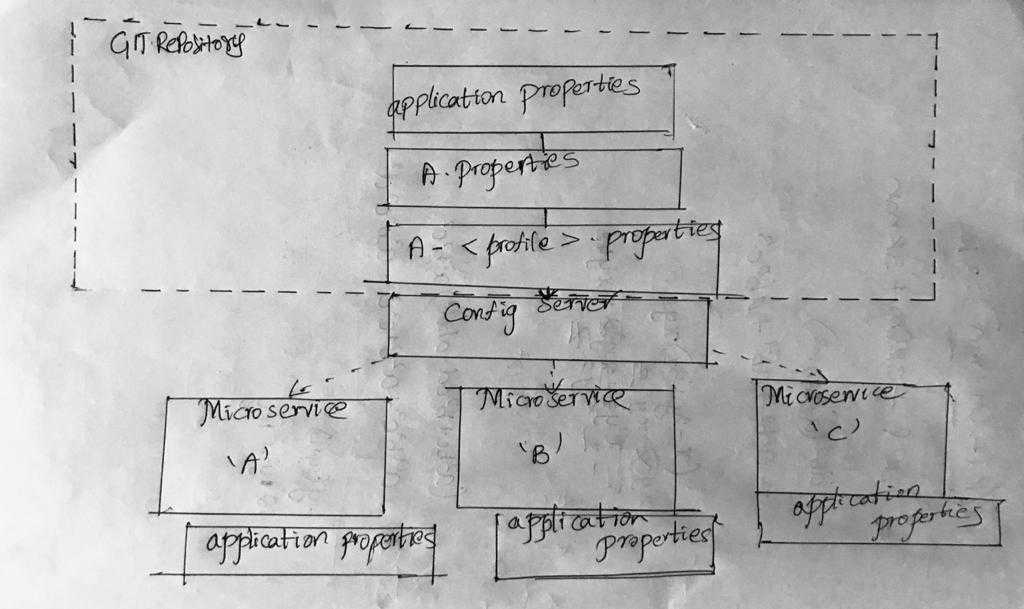 GIT Repository
application properties
A. properties
A- <profile>. properties
Config Server
Microservice
'A'
application properties
Microservice
'B'
application
properties
Microservice
'C'
application
properties